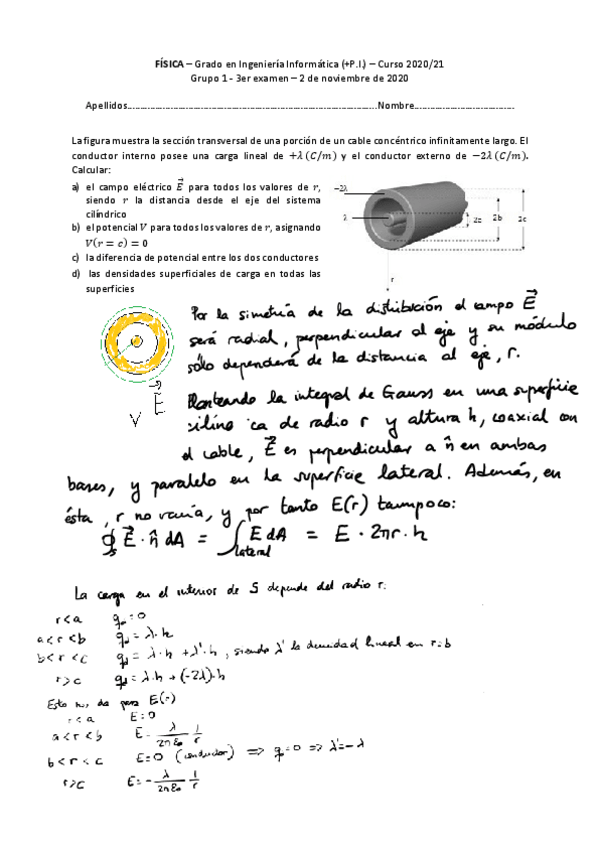 FÍSICA – Grado en Ingeniería Informática (+P.I.) – Curso 2020/21
Grupo 1 - 3er examen – 2 de noviembre de 2020
Apellidos..........................................................................................Nombre....................................
La figura muestra la sección transversal de una porción de un cable concéntrico infinitamente largo. El
conductor interno posee una carga lineal de +λ (C/m) y el conductor externo de −2λ (C/m).
Calcular:
a) el campo eléctrico E⃗ para todos los valores de r,
siendo r la distancia desde el eje del sistema
cilíndrico
b) el potencial V para todos los valores de r, asignando
V(r = c) = 0
c) la diferencia de potencial entre los dos conductores
d) las densidades superficiales de carga en todas las
superficies
−2λ
λ
2a 2b 2c
r
Por la simetría de la distribución el campo E⃗
será radial, perpendicular al eje y su módulo
sólo dependerá de la distancia al eje, r.
V E⃗
Planteando la integral de Gauss en una superficie
cilíndrica de radio r y altura h, coaxial con
el cable, E⃗ es perpendicular a n̂ en ambas
bases, y paralelo en la superficie lateral. Además, en
ésta, r no varía, y por tanto E(r) tampoco:
∮s E⃗·n̂ dA = ∫lateral E dA = E · 2πr·h
La carga en el interior de S depende del radio r:
r<a q=0
a<r<b q=λ·h
b<r<c q=λ·h +λ'·h, siendo λ' la densidad lineal en r=b
r>c q=λ·h+(-2λ)·h
Esto nos da para E(r)
r<a E=0
a<r<b E=λ/2πε₀ 1/r
b<r<c E=0 (conductor) ⇒ q=0 ⇒ λ'=-λ
r>c E=-λ/2πε₀ 1/r